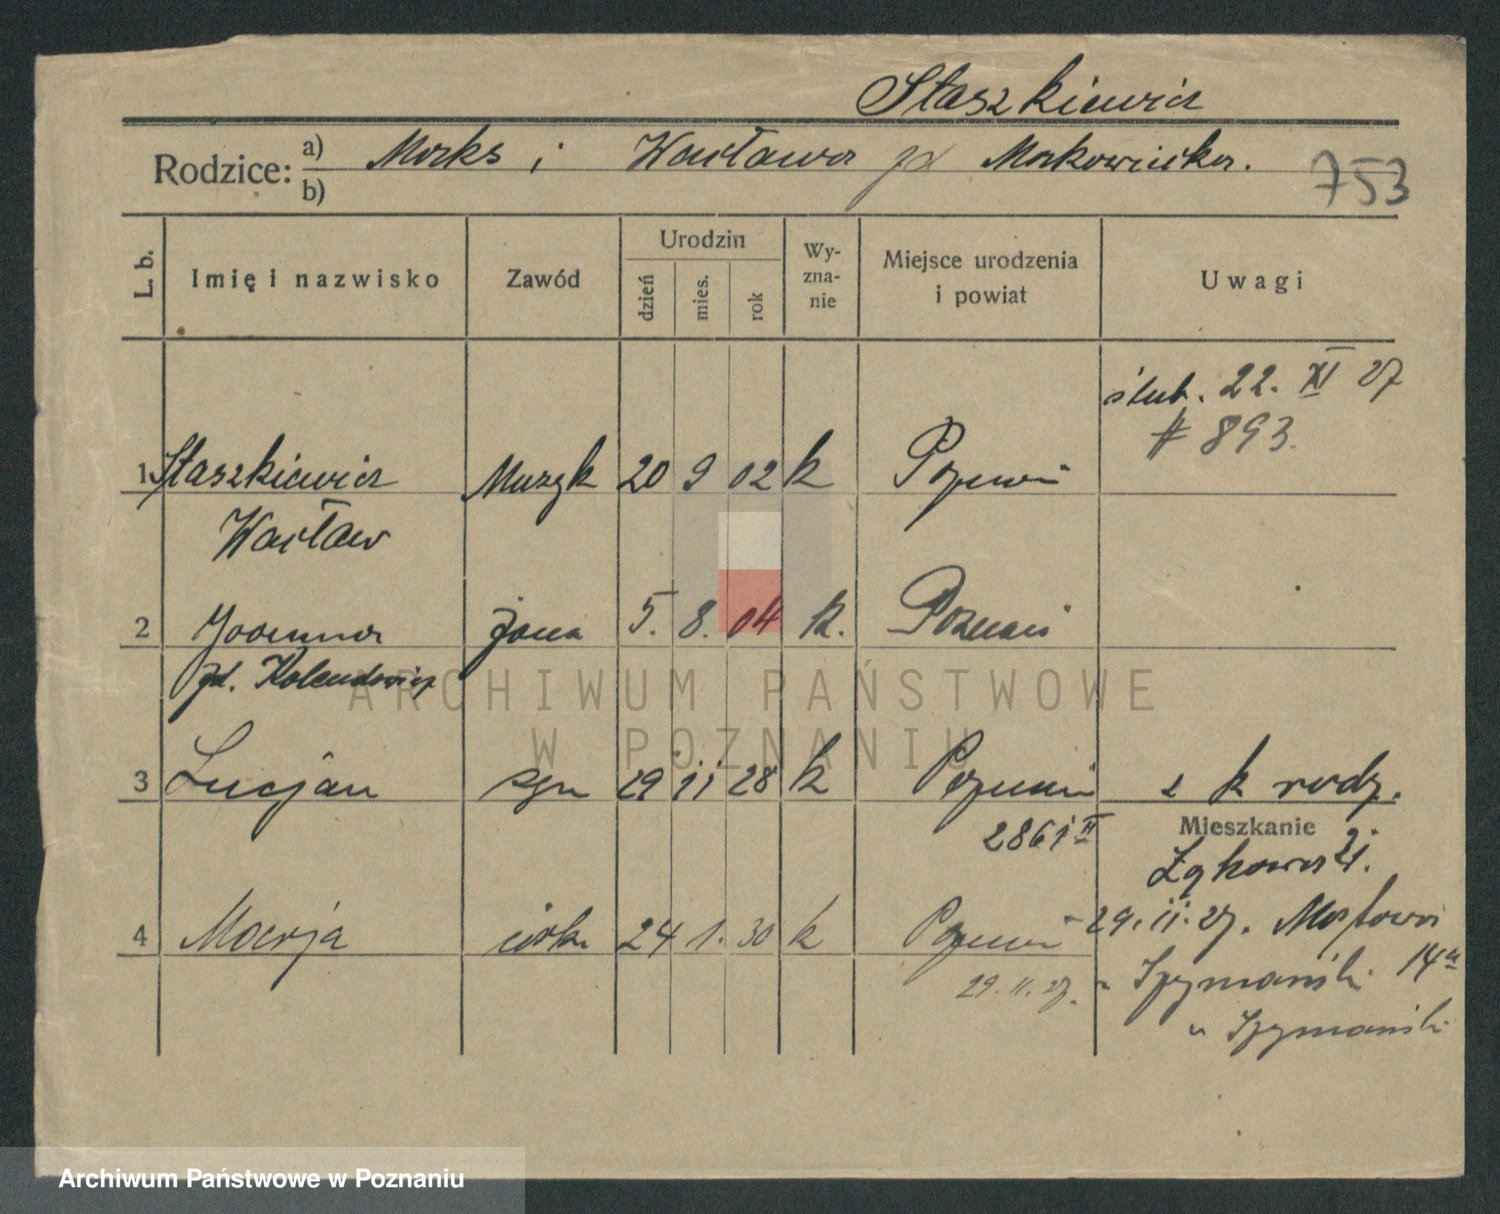 Staszkiewicz
Rodzice: a) Marks i Wacława zd Markowiecka.
b)
753
L. b. Imię i nazwisko Zawód Urodzin dzień mies. rok Wyznanie Miejsce urodzenia i powiat Uwagi
ślub. 22. XI 27
# 893.
1. Staszkiewicz Muzyk 20 9 02 k Poznań
Wacław
2 Joanna żona 5. 8. 04 k. Poznań
zd. Kolendowicz
3 Lucjan syn 29 11 28 k Poznań z k rodz.
2861 II
Mieszkanie
Łąkowa 21.
4 Marja córka 24 1. 30 k Poznań
29.11.27. Mostowa 14a
29.11.27. u Szymański
u Szymański
ARCHIWUM PAŃSTWOWE
W POZNANIU
Archiwum Państwowe w Poznaniu